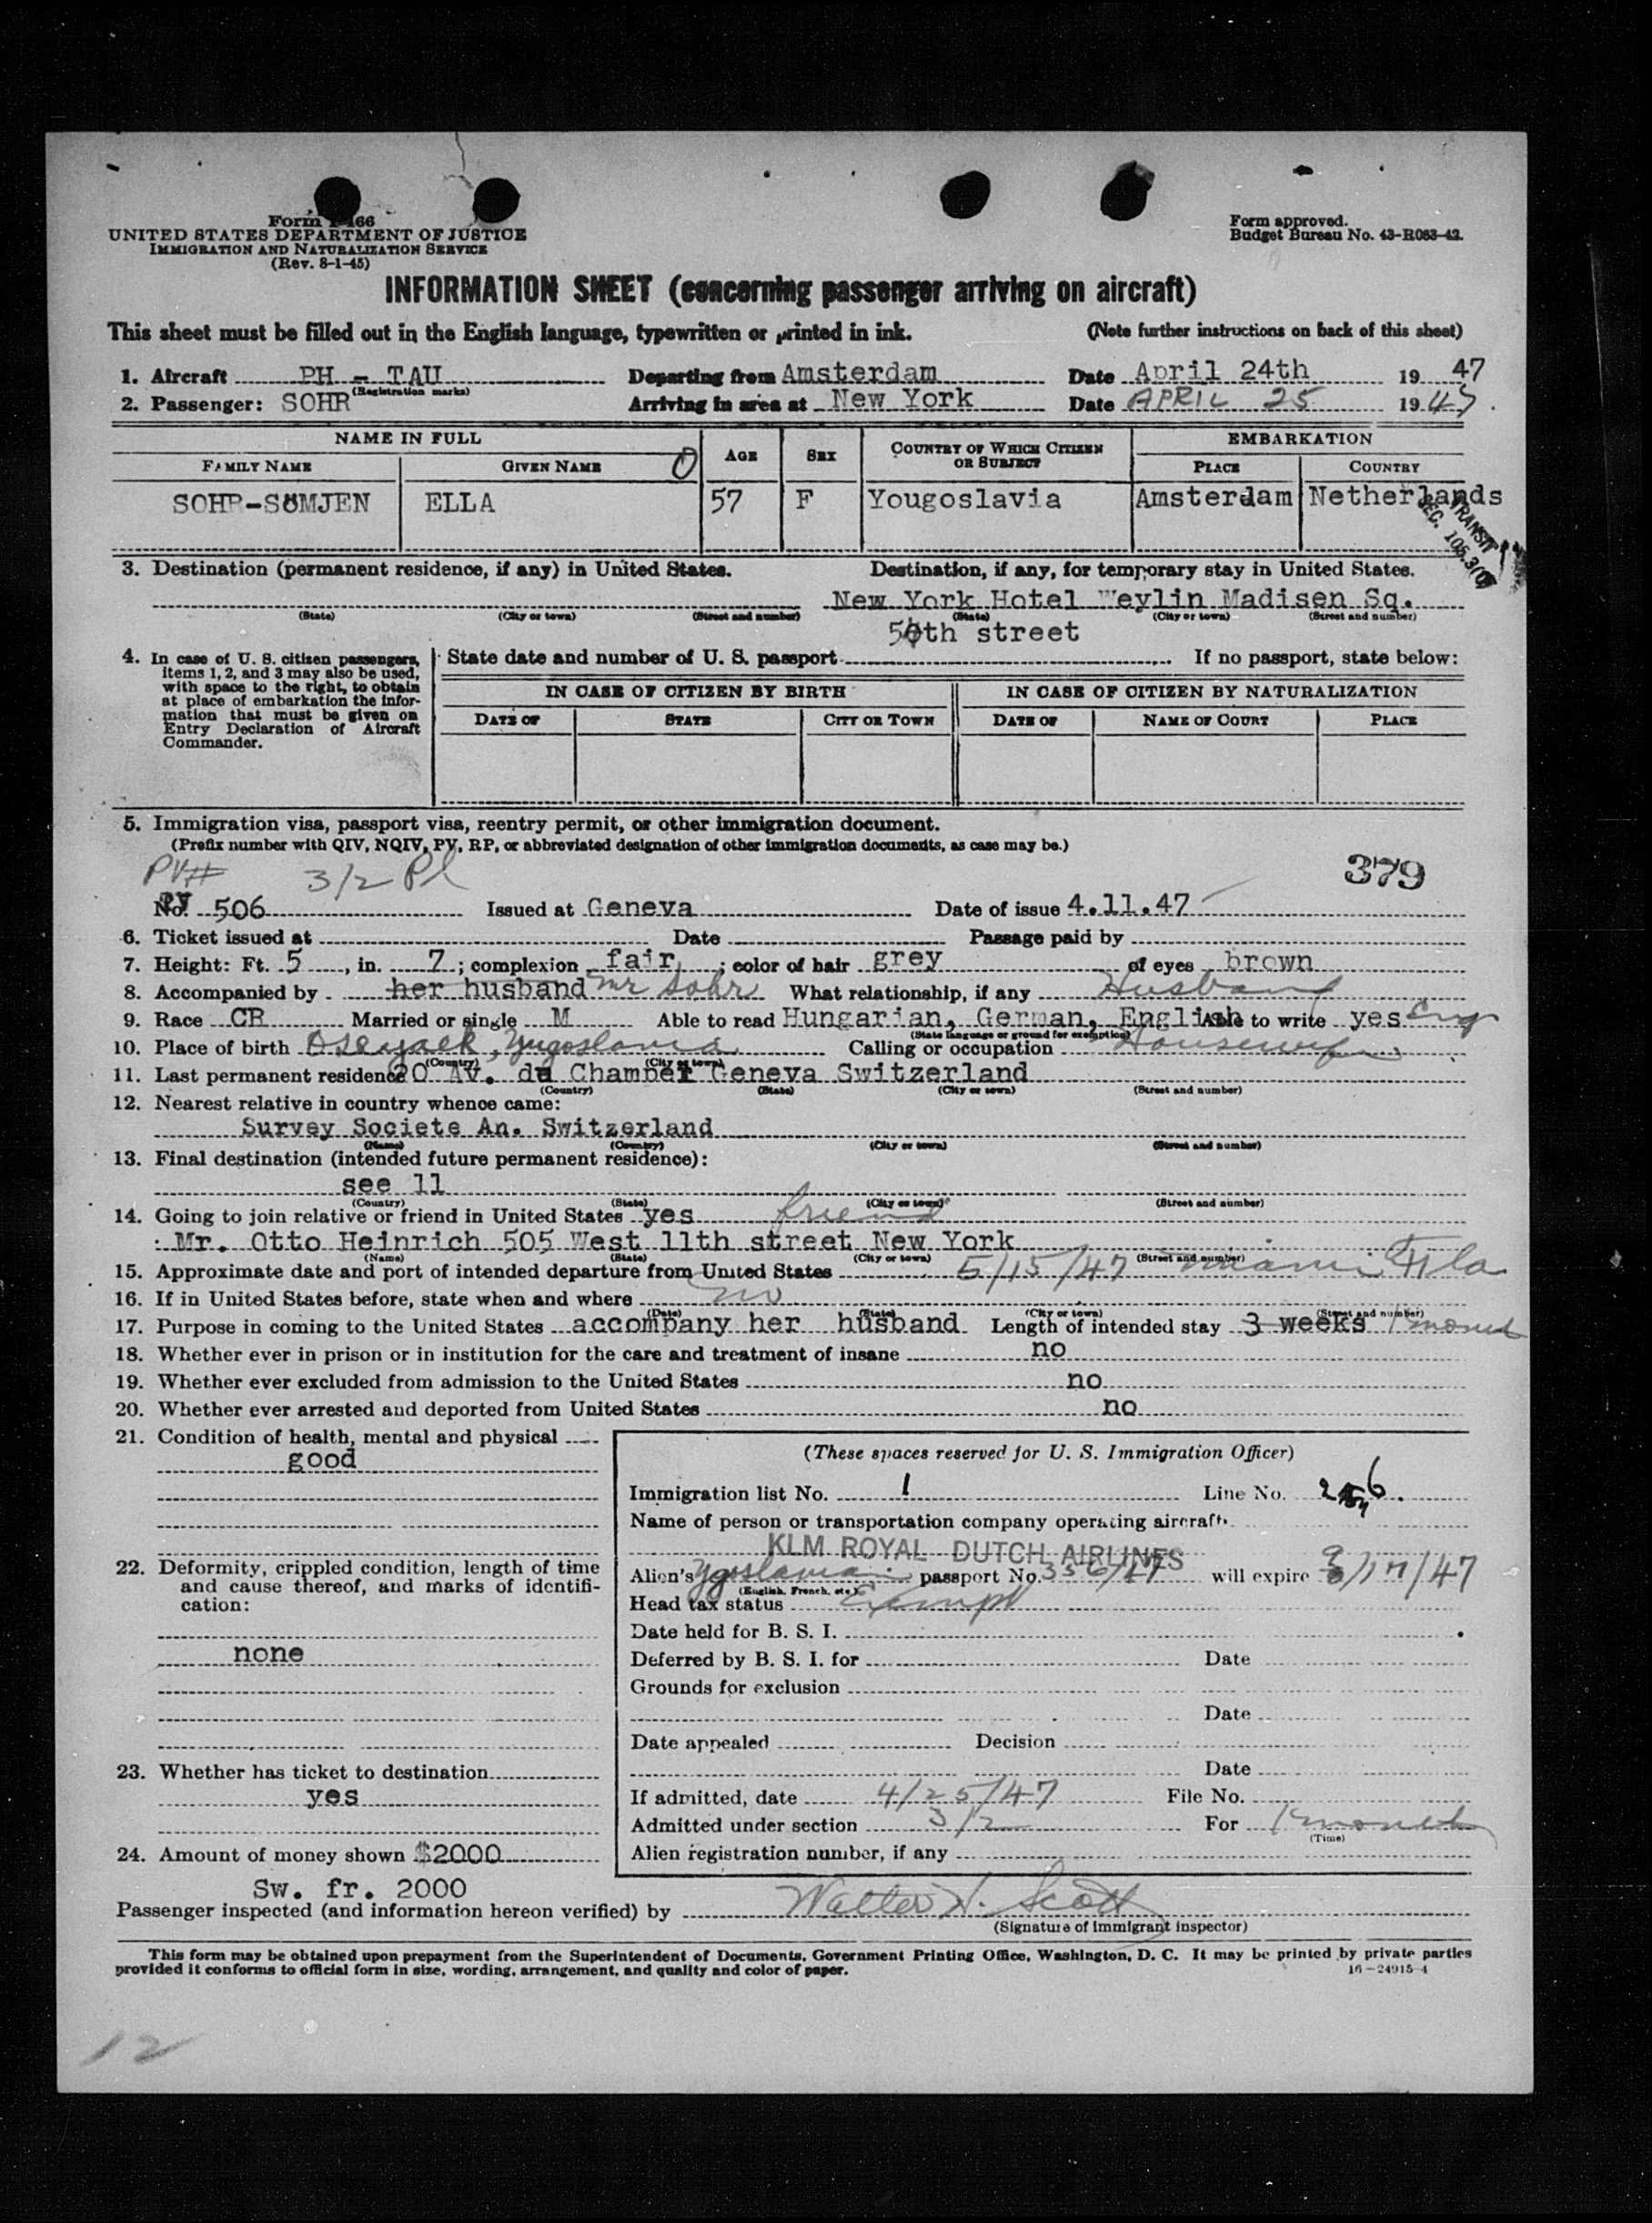 Form I-466
UNITED STATES DEPARTMENT OF JUSTICE
IMMIGRATION AND NATURALIZATION SERVICE
(Rev. 8-1-45)
Form approved.
Budget Bureau No. 43-R083-42.
INFORMATION SHEET (concerning passenger arriving on aircraft)
This sheet must be filled out in the English language, typewritten or printed in ink. (Note further instructions on back of this sheet)
1. Aircraft PH - TAU Departing from Amsterdam Date April 24th 19 47
(Registration marks)
2. Passenger: SOHR Arriving in area at New York Date APRIL 25 1947.
NAME IN FULL AGE SEX COUNTRY OF WHICH CITIZEN OR SUBJECT EMBARKATION
FAMILY NAME GIVEN NAME PLACE COUNTRY
SOHR-SÖMJEN ELLA 57 F Yougoslavia Amsterdam Netherlands
TRANSIT
SEC. 105.3(C)
3. Destination (permanent residence, if any) in United States. Destination, if any, for temporary stay in United States.
New York Hotel Weylin Madisen Sq.
(State) (City or town) (Street and number) (State) (City or town) (Street and number)
54th street
4. In case of U. S. citizen passengers, items 1, 2, and 3 may also be used, with space to the right, to obtain at place of embarkation the information that must be given on Entry Declaration of Aircraft Commander.
State date and number of U. S. passport If no passport, state below:
IN CASE OF CITIZEN BY BIRTH IN CASE OF CITIZEN BY NATURALIZATION
DATE OF STATE CITY OR TOWN DATE OF NAME OF COURT PLACE
5. Immigration visa, passport visa, reentry permit, or other immigration document.
(Prefix number with QIV, NQIV, PV, RP, or abbreviated designation of other immigration documents, as case may be.)
PV# 3/2 Pl 379
No. PV 506 Issued at Geneva Date of issue 4.11.47
6. Ticket issued at Date Passage paid by
7. Height: Ft. 5, in. 7; complexion fair; color of hair grey of eyes brown
8. Accompanied by her husband Mr Sohr What relationship, if any Husband
9. Race CR Married or single M Able to read Hungarian, German, English Able to write yes Eng
(State language or ground for exemption)
10. Place of birth Oseyaek, Yugoslavia Calling or occupation Housewife
(Country) (City or town)
11. Last permanent residence 20 Av. de Champel Geneva Switzerland
(Country) (State) (City or town) (Street and number)
12. Nearest relative in country whence came:
Survey Societe An. Switzerland
(Name) (Country) (City or town) (Street and number)
13. Final destination (intended future permanent residence):
see 11
(Country) (State) (City or town) (Street and number)
14. Going to join relative or friend in United States yes friend
: Mr. Otto Heinrich 505 West 11th street New York
(Name) (State) (City or town) (Street and number)
15. Approximate date and port of intended departure from United States 5/15/47 Miami Fla
16. If in United States before, state when and where no
(Date) (State) (City or town) (Street and number)
17. Purpose in coming to the United States accompany her husband Length of intended stay 3 weeks 1 month
18. Whether ever in prison or in institution for the care and treatment of insane no
19. Whether ever excluded from admission to the United States no
20. Whether ever arrested and deported from United States no
21. Condition of health, mental and physical
good
22. Deformity, crippled condition, length of time and cause thereof, and marks of identification:
none
23. Whether has ticket to destination
yes
24. Amount of money shown $2000
Sw. fr. 2000
(These spaces reserved for U. S. Immigration Officer)
Immigration list No. 1 Line No. 6.
Name of person or transportation company operating aircraft
KLM ROYAL DUTCH AIRLINES
Alien's Ygoslavian passport No. 356/47 will expire 3/17/47
(English, French, etc.)
Head tax status Exempt
Date held for B. S. I.
Deferred by B. S. I. for Date
Grounds for exclusion
Date
Date appealed Decision
Date
If admitted, date 4/25/47 File No.
Admitted under section 3/2 For 1 month
(Time)
Alien registration number, if any
Passenger inspected (and information hereon verified) by Walter H. Scott
(Signature of immigrant inspector)
This form may be obtained upon prepayment from the Superintendent of Documents, Government Printing Office, Washington, D. C. It may be printed by private parties
provided it conforms to official form in size, wording, arrangement, and quality and color of paper. 16-24915-4
12